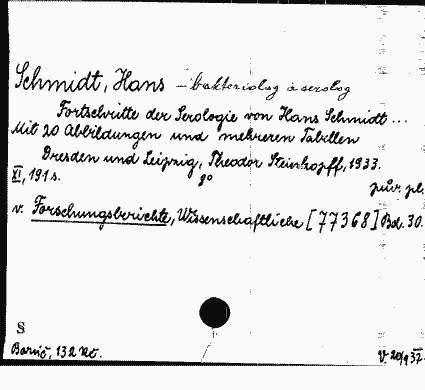 Schmidt, Hans – bakteriolog a serolog
Fortschritte der Serologie von Hans Schmidt ...
Mit 20 Abbildungen und mehreren Tabellen
Dresden und Leipzig, Theodor Steinkopff, 1933.
XI, 191 s. 8° pův. pl.
v. Forschungsberichte, Wissenschaftliche [77368] Bd. 30.
§
132 Kč.